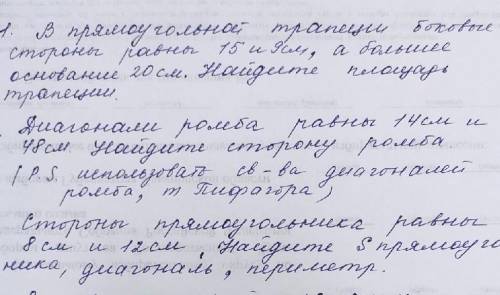 1. В прямоугольной трапеции боковые
стороны равны 15 и 9см, а большее
основание 20 см. Найдите площадь
трапеции.
Диагонали ромба равны 14 см и
48 см Найдите сторону ромба
(P.S. использовать св-ва диагоналей
ромба, т Пифагора)
Стороны прямоугольника равны
8 см и 12 см, Найдите S прямоуго
ника, диагональ, периметр.